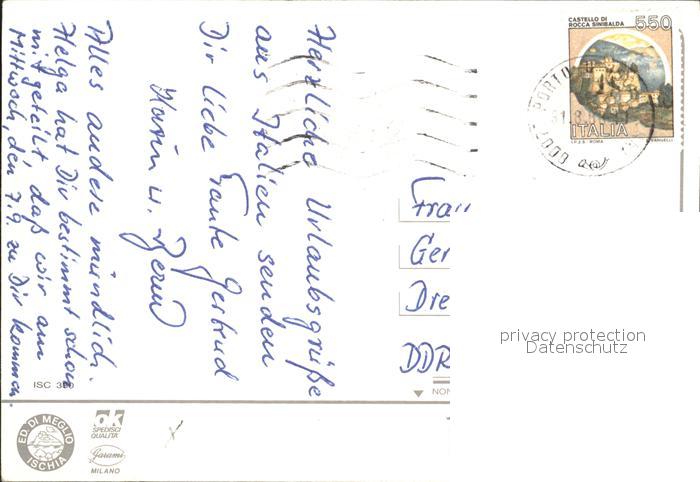 Herzliche Urlaubsgrüße
aus Italien senden
Dir liebe Tante Gertrud
Karin u. Bernd
Alles andere mündlich.
Helga hat Dir bestimmt schon
mitgeteilt, daß wir am
Mittwoch, den 7.9. zu Dir kommen.
CASTELLO DI
ROCCA SINIBALDA
550
ITALIA
I.P.Z.S. ROMA
PORTO
Frau
Ger
Dre
DDR
privacy protection
Datenschutz
ISC
NON
ED. DI MEGLIO
ISCHIA
ok
SPEDISCI
QUALITÀ
Garami
MILANO